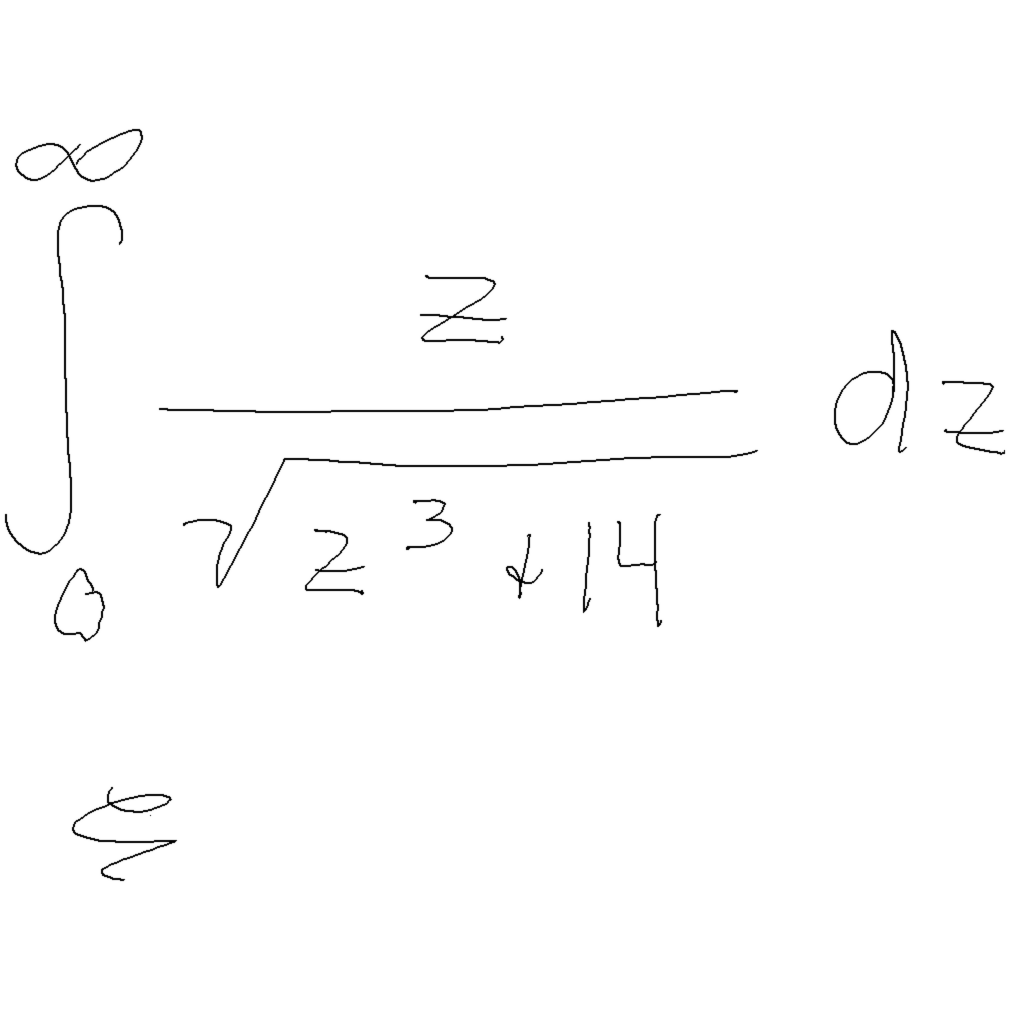 ∫_0^∞ z / √(z^3 + 14) dz
ξ